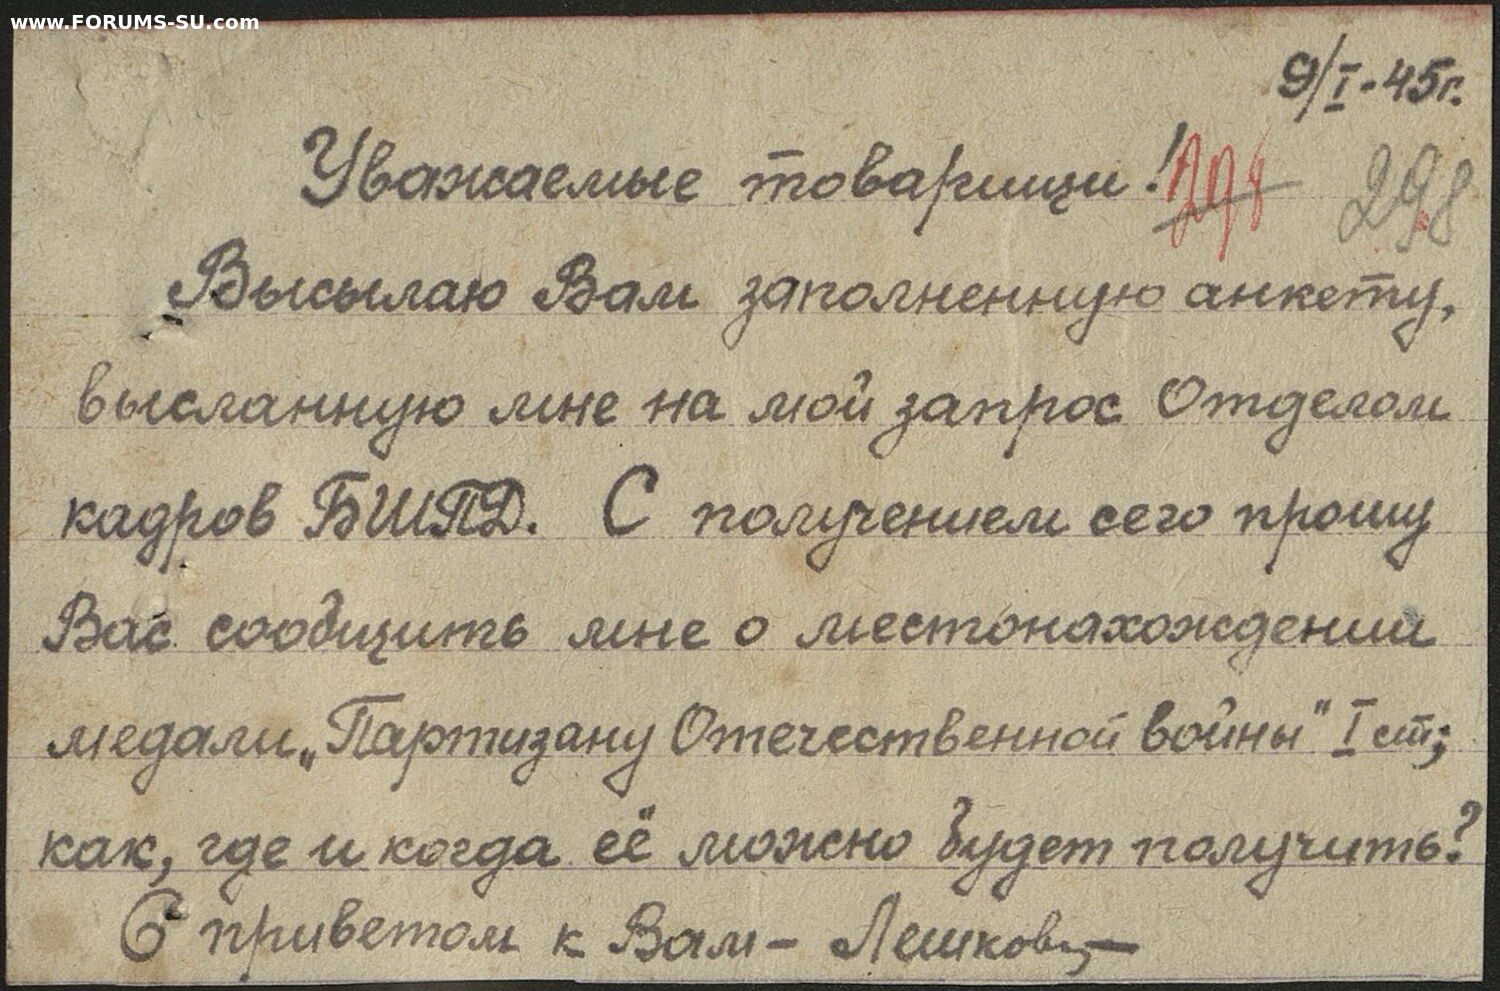 www.FORUMS-SU.com
9/I-45г.
Уважаемые товарищи!
298 298
Высылаю Вам заполненную анкету,
высланную мне на мой запрос Отделом
кадров БШПД. С получением сего прошу
Вас сообщить мне о местонахождении
медали „Партизану Отечественной войны" I ст;
как, где и когда её можно будет получить?
С приветом к Вам – Лешковц